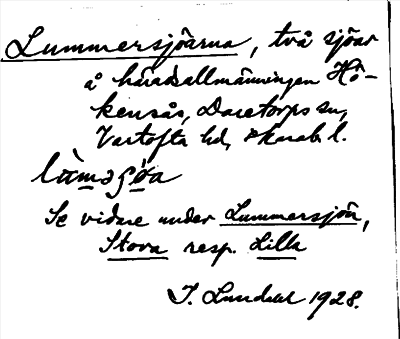 Lummersjöarna, två sjöar
å häradsallmänningen Hö-
kensås, Daretorps sn,
Vartofta hd, Skarab. l.
lùməʃöa
Se vidare under Lummersjön,
Stora resp. Lilla
J. Lundahl 1928.